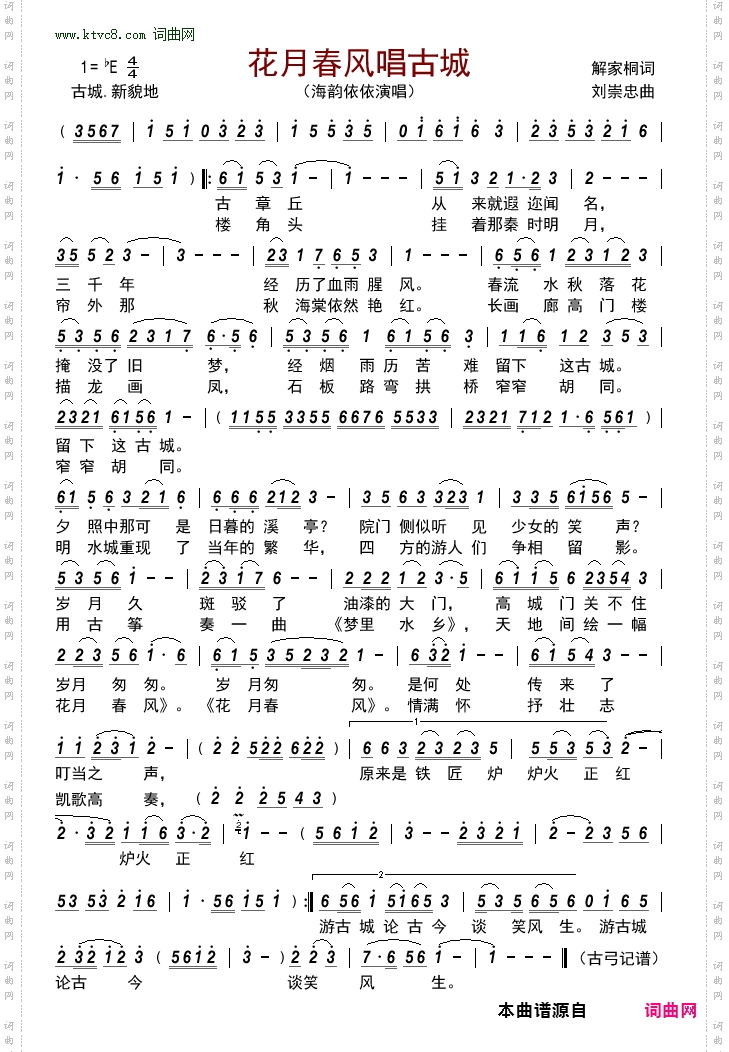 www.ktvc8.com 词曲网
花月春风唱古城
1=♭E 4/4
解家桐词
古城.新貌地
（海韵依依演唱）
刘崇忠曲
( 3567 | 1 51 03 23 | 1 55 35 | 01 61 6 3 | 23 53 21 6 |
1· 56 151 ) ‖: 61 53 1 - | 1 - - - | 51 32 1·23 | 2 - - - |
古 章 丘 从 来就遐 迩闻 名，
楼 角 头 挂 着那秦 时明 月，
35 52 3 - | 3 - - - | 23 1 765 3 | 1 - - - | 6561 23123 |
三 千 年 经 历了血雨 腥 风。 春流 水 秋 落 花
帘 外 那 秋 海棠依然 艳 红。 长画 廊 高 门 楼
5356 2317 6·5 6 | 5356 1 6156 3 | 116 12 353 |
掩 没了 旧 梦， 经 烟 雨 历 苦 难 留下 这古 城。
描 龙 画 凤， 石 板 路 弯 拱 桥 窄窄 胡 同。
2321 6156 1 - | ( 1155 3355 6676 5533 | 2321 712 1·6 561 )
留 下 这 古 城。
窄 窄 胡 同。
61 563 321 6 | 666 212 3 - | 35 63 323 1 | 335 6156 5 - |
夕 照中那可 是 日暮的 溪 亭？ 院门 侧似听 见 少女的 笑 声？
明 水城重现 了 当年的 繁 华， 四 方的游人 们 争相 留 影。
5356 1 - - | 2317 6 - - | 222 12 3·5 | 6115 56 23543 |
岁 月 久 斑 驳 了 油漆的 大 门， 高 城 门 关 不 住
用 古 筝 奏 一 曲 《梦里 水 乡》， 天 地 间 绘 一 幅
223 56 1·6 | 615 35232 1 - | 6321 - - | 61543 - - |
岁月 匆 匆。 岁 月匆 匆。 是何 处 传 来 了
花月 春 风》。《花 月春 风》。情满 怀 抒 壮 志
1
11 231 2 - ( 225 522 622 ) | 663 23 235 | 55 353 2 -
叮当之 声， 原来是 铁 匠 炉 炉火 正 红
凯歌高 奏，( 2 2 2543 )
2·32 116 3·2 | 1 - - ( 5612 | 3 - - 2321 | 2 - 23 56 |
炉火 正 红
2
53 53 21 6 | 1·56 151 ) :‖ 6 56 1 5165 3 | 535656 01 65
游古 城 论 古 今 谈 笑风 生。 游古城
2 32 12 3 ( 5612 | 3 - ) 2 323 | 7·656 1 - | 1 - - - ‖ （古弓记谱）
论古 今 谈笑 风 生。
本曲谱源自 词曲网